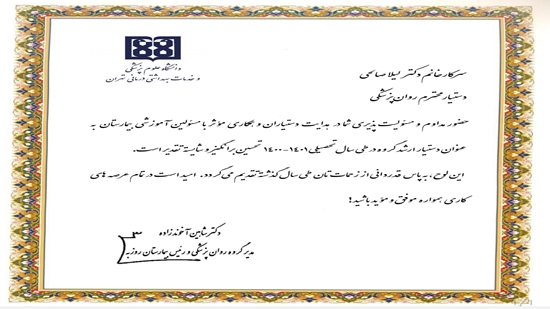 دانشگاه علوم پزشکی
و خدمات بهداشتی درمانی تهران
سرکار خانم دکتر لیلا صالحی
دستیار محترم روان پزشکی
حضور مداوم و مسئولیت پذیری شما در هدایت دستیاران و همکاری مؤثر با مسئولین آموزشی بیمارستان به
عنوان دستیار ارشد گروه در طی سال تحصیلی ۱۴۰۱-۱۴۰۰ تحسین برانگیز و شایسته تقدیر است.
این لوح، به پاس قدردانی از زحمات تان طی سال گذشته تقدیم می گردد. امید است در تمام عرصه های
کاری همواره موفق و مؤید باشید!
دکتر شاهین آخوندزاده
مدیر گروه روان پزشکی و رئیس بیمارستان روزبه